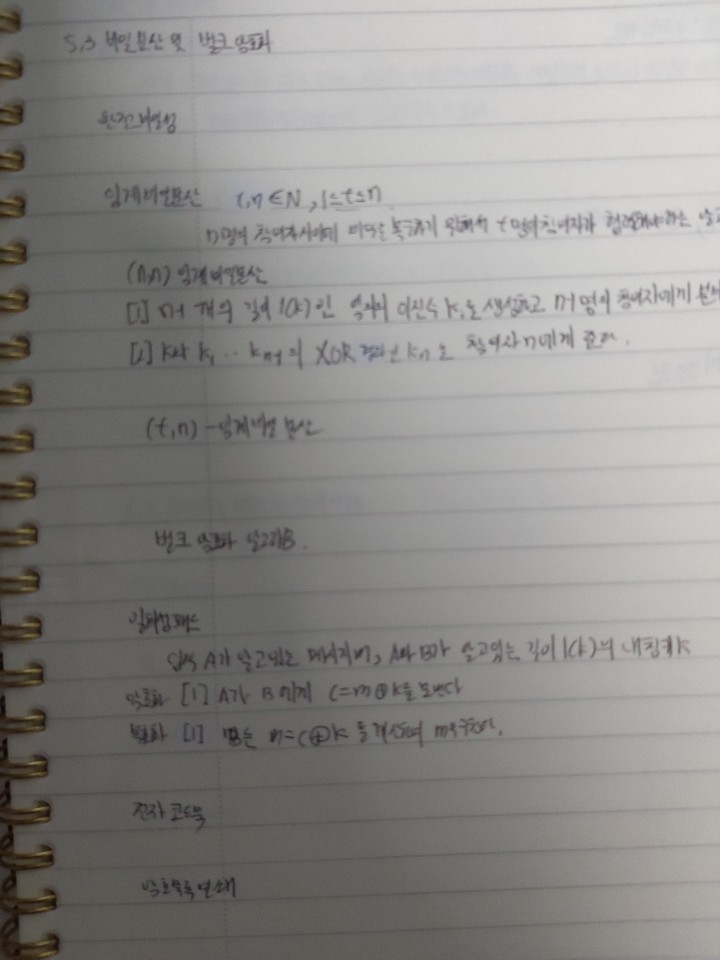 5.3 비밀분산 및 벌크 암호화
완전비밀성
임계비밀분산 t,n ∈ N, 1≤t≤n
n명의 참여자사이에 비밀을 복구하기 위해서 t명의 참여자가 협력해야하는
(n,n) 임계비밀분산
[1] n-1 개의 길이 l(k)인 임의의 이진수 k_i를 생성하고 n-1명의 참여자에게
[2] k와 k₁ ... k_{n-1}의 XOR 결과인 k_n을 참여자 n에게 준다.
(t,n) - 임계비밀분산
벌크 암호화 알고리즘.
일회성패드
A가 알고있는 메시지 m, A와 B가 알고있는 길이 l(k)의 대칭키 k
암호화 [1] A가 B에게 c=m⊕k을 보낸다
복호화 [1] B는 m=c⊕k를 계산하여 m을
전자코드북
암호블록연쇄